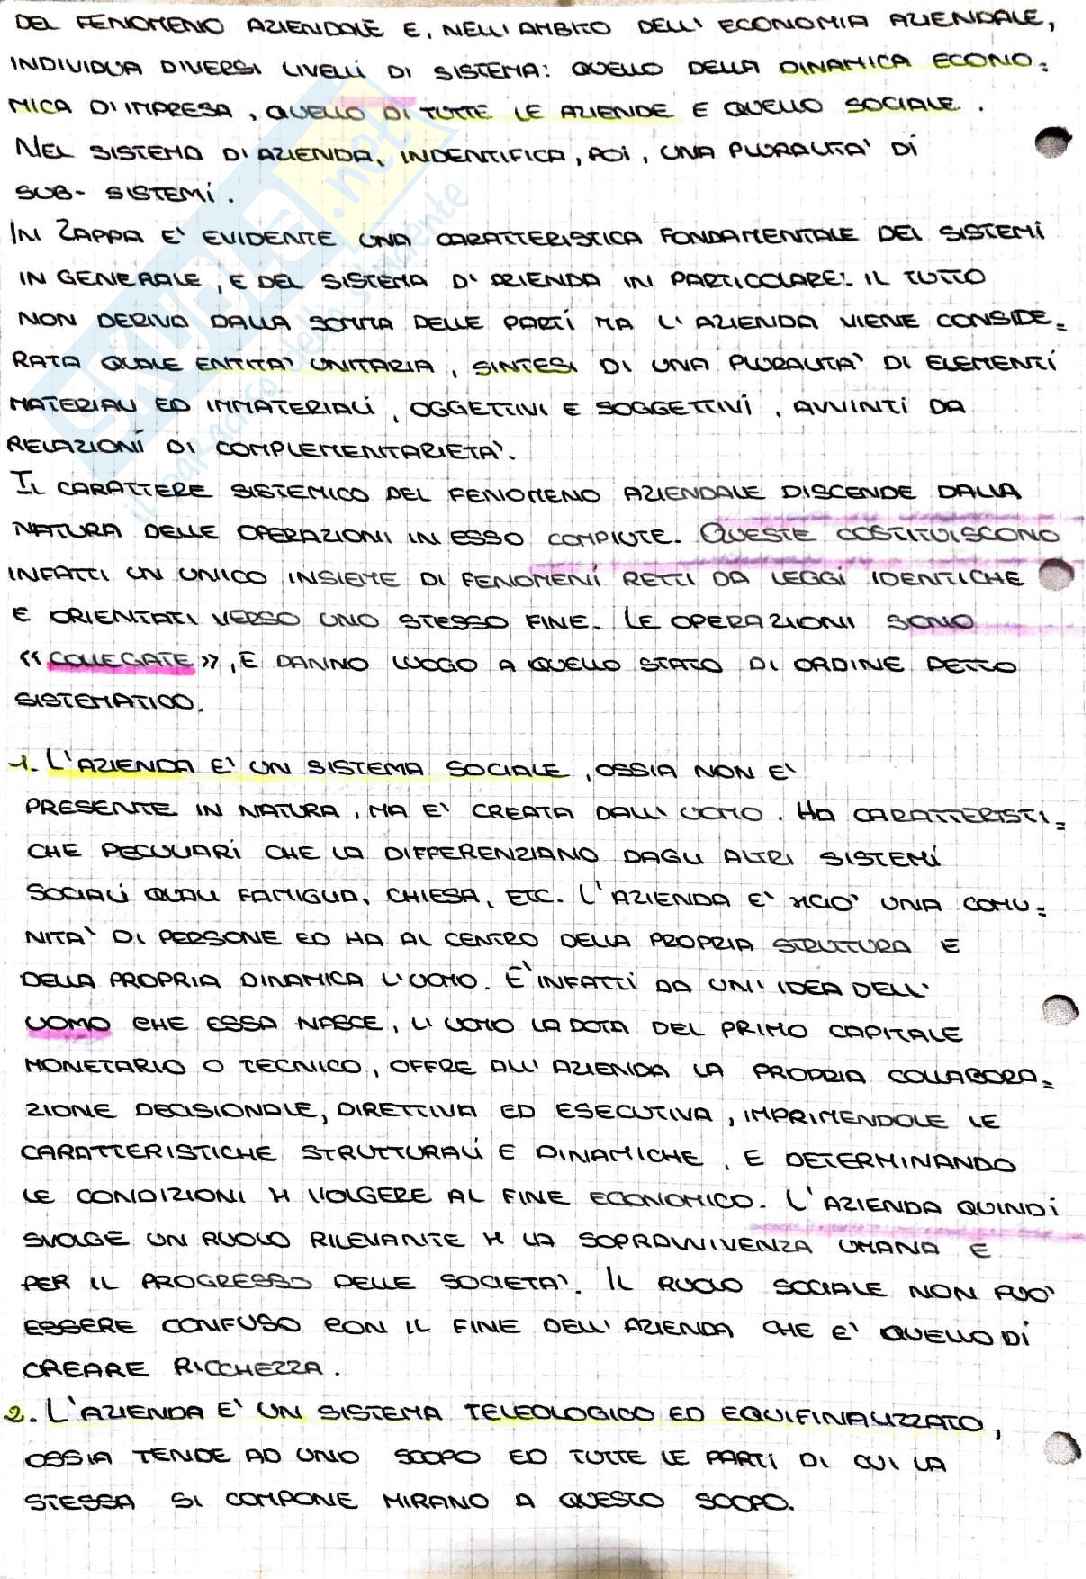 DEL FENOMENO AZIENDALE E, NELL'AMBITO DELL'ECONOMIA AZIENDALE,
INDIVIDUA DIVERSI LIVELLI DI SISTEMA: QUELLO DELLA DINAMICA ECONO=
MICA D'IMPRESA, QUELLO DI TUTTE LE AZIENDE E QUELLO SOCIALE.
NEL SISTEMA D'AZIENDA, INDENTIFICA, POI, UNA PLURALITA' DI
SUB-SISTEMI.
IN ZAPPA E' EVIDENTE UNA CARATTERISTICA FONDAMENTALE DEI SISTEMI
IN GENERALE, E DEL SISTEMA D'AZIENDA IN PARTICOLARE: IL TUTTO
NON DERIVA DALLA SOMMA DELLE PARTI MA L'AZIENDA VIENE CONSIDE=
RATA QUALE ENTITA' UNITARIA, SINTESI DI UNA PLURALITA' DI ELEMENTI
MATERIALI ED IMMATERIALI, OGGETTIVI E SOGGETTIVI, AVVINTI DA
RELAZIONI DI COMPLEMENTARIETA'.
IL CARATTERE SISTEMICO DEL FENOMENO AZIENDALE DISCENDE DALLA
NATURA DELLE OPERAZIONI IN ESSO COMPIUTE. QUESTE COSTITUISCONO
INFATTI UN UNICO INSIEME DI FENOMENI RETTI DA LEGGI IDENTICHE
E ORIENTATI VERSO UNO STESSO FINE. LE OPERAZIONI SONO
«COLLEGATE», E DANNO LUOGO A QUELLO STATO DI ORDINE DETTO
SISTEMATICO.
1. L'AZIENDA E' UN SISTEMA SOCIALE, OSSIA NON E'
PRESENTE IN NATURA, MA E' CREATA DALL'UOMO. HA CARATTERISTI=
CHE PECULIARI CHE LA DIFFERENZIANO DAGLI ALTRI SISTEMI
SOCIALI QUALI FAMIGLIA, CHIESA, ETC. L'AZIENDA E' XCIO' UNA COMU=
NITA' DI PERSONE ED HA AL CENTRO DELLA PROPRIA STRUTTURA E
DELLA PROPRIA DINAMICA L'UOMO. E' INFATTI DA UN'IDEA DELL'
UOMO CHE ESSA NASCE, L'UOMO LA DOTA DEL PRIMO CAPITALE
MONETARIO O TECNICO, OFFRE ALL'AZIENDA LA PROPRIA COLLABORA=
ZIONE DECISIONALE, DIRETTIVA ED ESECUTIVA, IMPRIMENDOLE LE
CARATTERISTICHE STRUTTURALI E DINAMICHE, E DETERMINANDO
LE CONDIZIONI X VOLGERE AL FINE ECONOMICO. L'AZIENDA QUINDI
SVOLGE UN RUOLO RILEVANTE X LA SOPRAVVIVENZA UMANA E
PER IL PROGRESSO DELLE SOCIETA'. IL RUOLO SOCIALE NON PUO'
ESSERE CONFUSO CON IL FINE DELL'AZIENDA CHE E' QUELLO DI
CREARE RICCHEZZA.
2. L'AZIENDA E' UN SISTEMA TELEOLOGICO ED EQUIFINALIZZATO,
OSSIA TENDE AD UNO SCOPO ED TUTTE LE PARTI DI CUI LA
STESSA SI COMPONE MIRANO A QUESTO SCOPO.